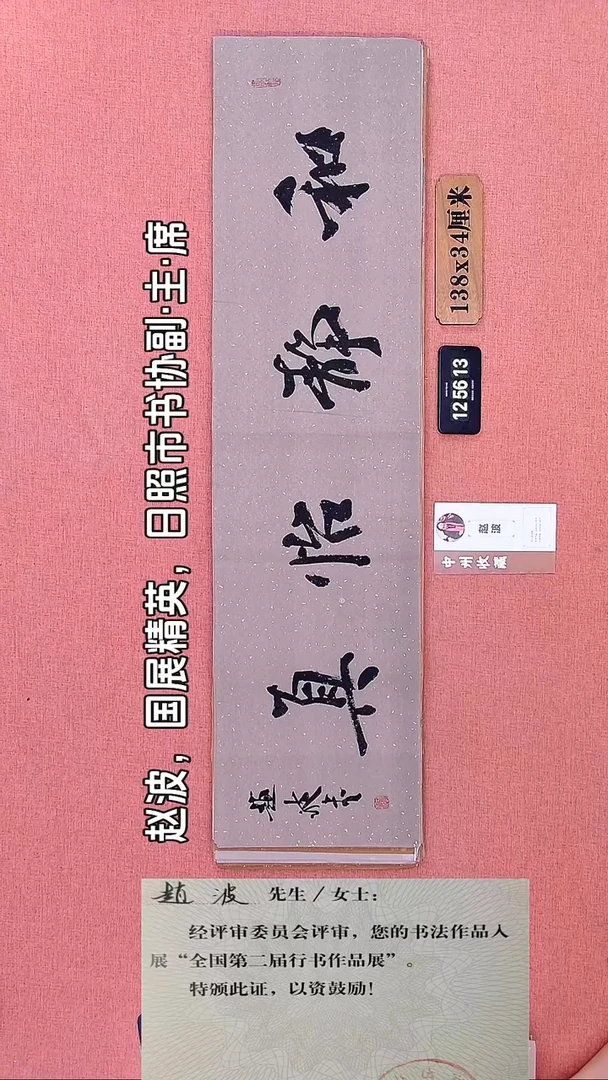 和静怡真
趙波书
赵波，国展精英，日照市书协副·主·席
138x34厘米
12 56 13
赵波
中州收藏
趙波 先生／女士：
经评审委员会评审，您的书法作品入
展“全国第二届行书作品展”。
特颁此证，以资鼓励！